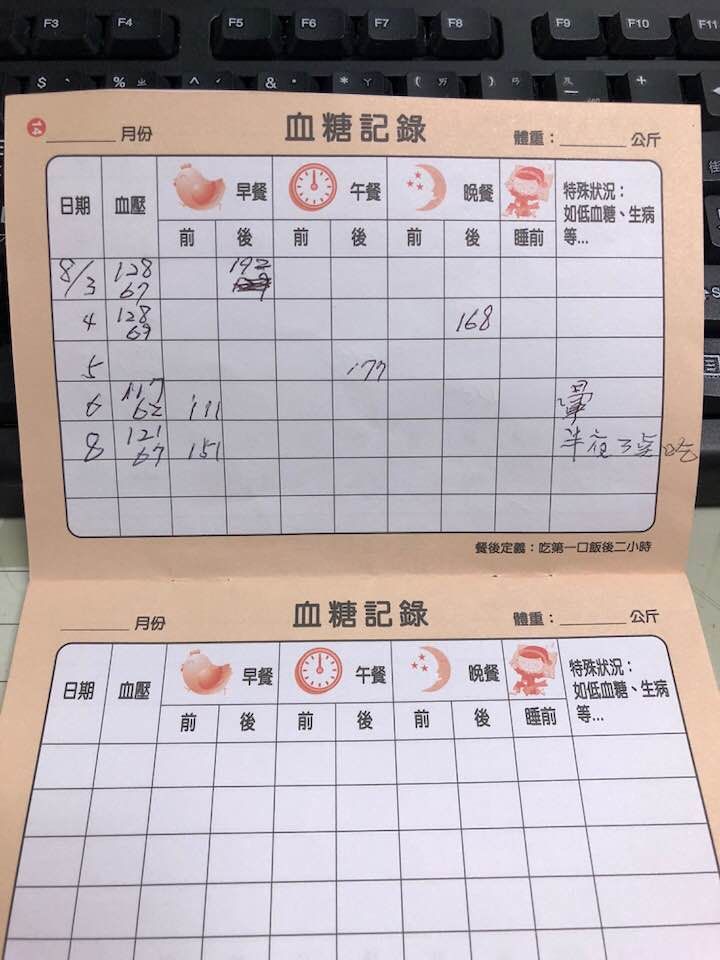 F3 F4 F5 F6 F7 F8 F9 F10 F11
$ % & *
14 月份 血糖記錄 體重： 公斤
日期 血壓 早餐 午餐 晚餐 特殊狀況：
如低血糖、生病
等...
前 後 前 後 前 後 睡前
8/3 128 192
67
4 128 168
69
5 177
6 117 111 暈
62
8 121 151 半夜3點吃
67
餐後定義：吃第一口飯後二小時
月份 血糖記錄 體重： 公斤
日期 血壓 早餐 午餐 晚餐 特殊狀況：
如低血糖、生病
等...
前 後 前 後 前 後 睡前